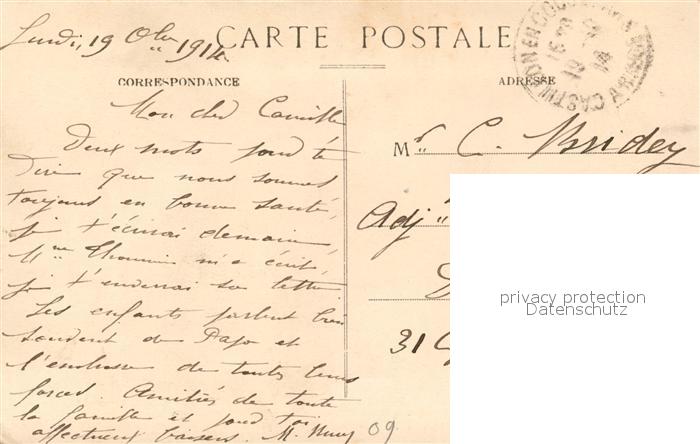 Lundi, 19 Obre 1914
CARTE POSTALE
CORRESPONDANCE
ADRESSE
Mon cher Camille
Deux mots pour te
dire que nous sommes
toujours en bonne santé,
je t'écrirai demain,
Mme m'a écrit,
je t'enverrai sa lettre
Les enfants parlent bien
souvent de Papa et
t'embrasse de toutes leurs
forces. Amitiés de toute
la famille et pour toi
affectueux baisers. M.
09
Mr C. Bridey
Adj
31
privacy protection
Datenschutz